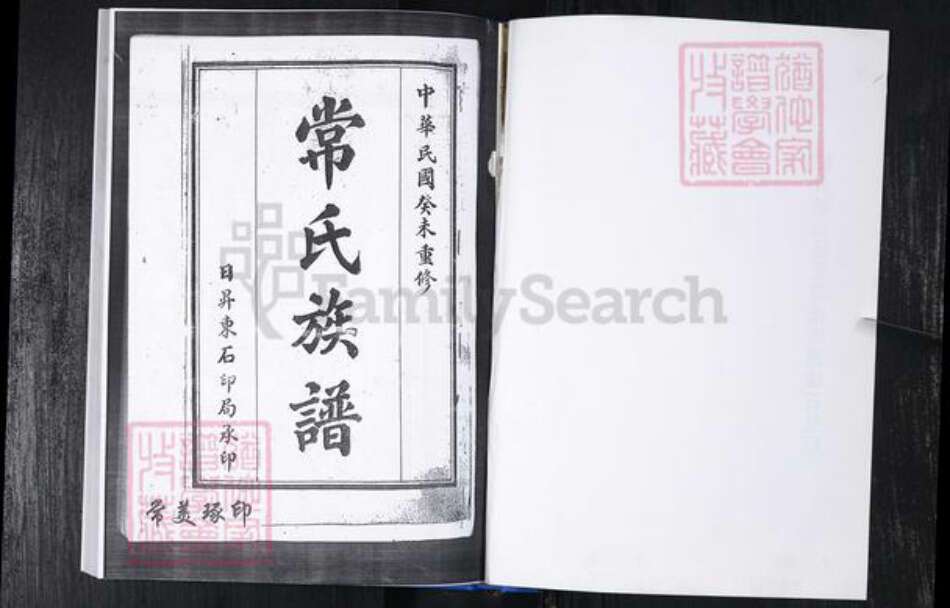 中華民國癸未重修
常氏族譜
日昇東石印局承印
常美琢印
猶他家譜學會收藏
猶他家譜學會收藏
FamilySearch